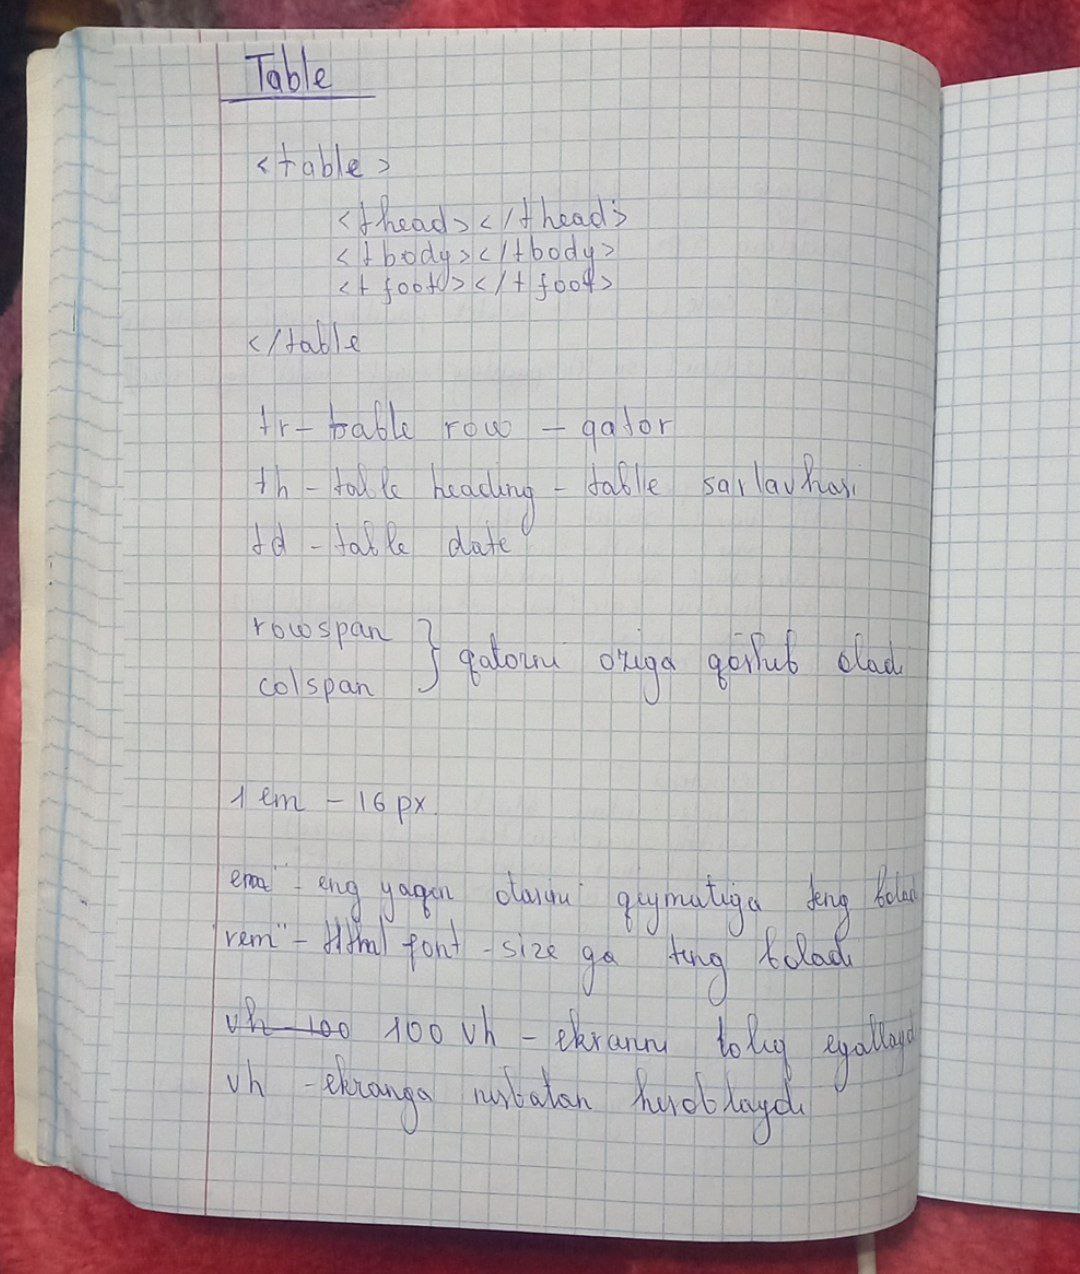 Table
<table>
<thead></thead>
<tbody></tbody>
<tfoot></tfoot>
</table
tr - table row - qator
th - table heading - table sarlavhasi
td - table date
rowspan
colspan } qatorni oziga qoshub oladi
1 em - 16 px.
em" - eng yaqin otasini qiymatiga teng bolad
rem" - Html font - size ga teng boladi
vh - 100 100 vh - ekranni toliq egallayd
vh - ekranga nisbatan hisoblaydi